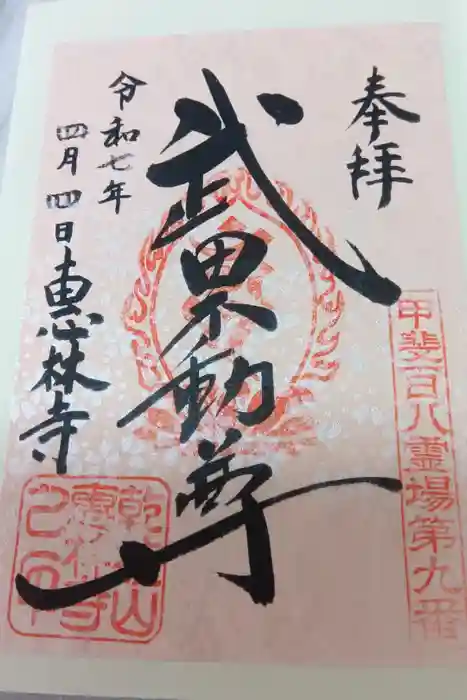 奉拝
甲斐百八霊場第九番
武田不動尊
令和七年
四月四日
恵林寺
乾徳山
恵林寺